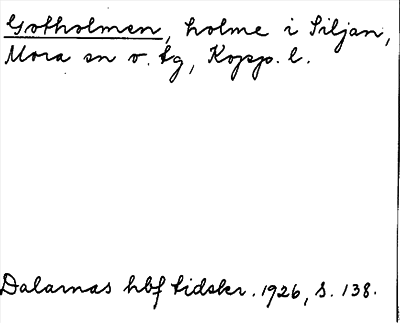 Gotholmen, holme i Siljan,
Mora sn o. tg, Kopp. l.
Dalarnas hbf tidskr. 1926, s. 138.